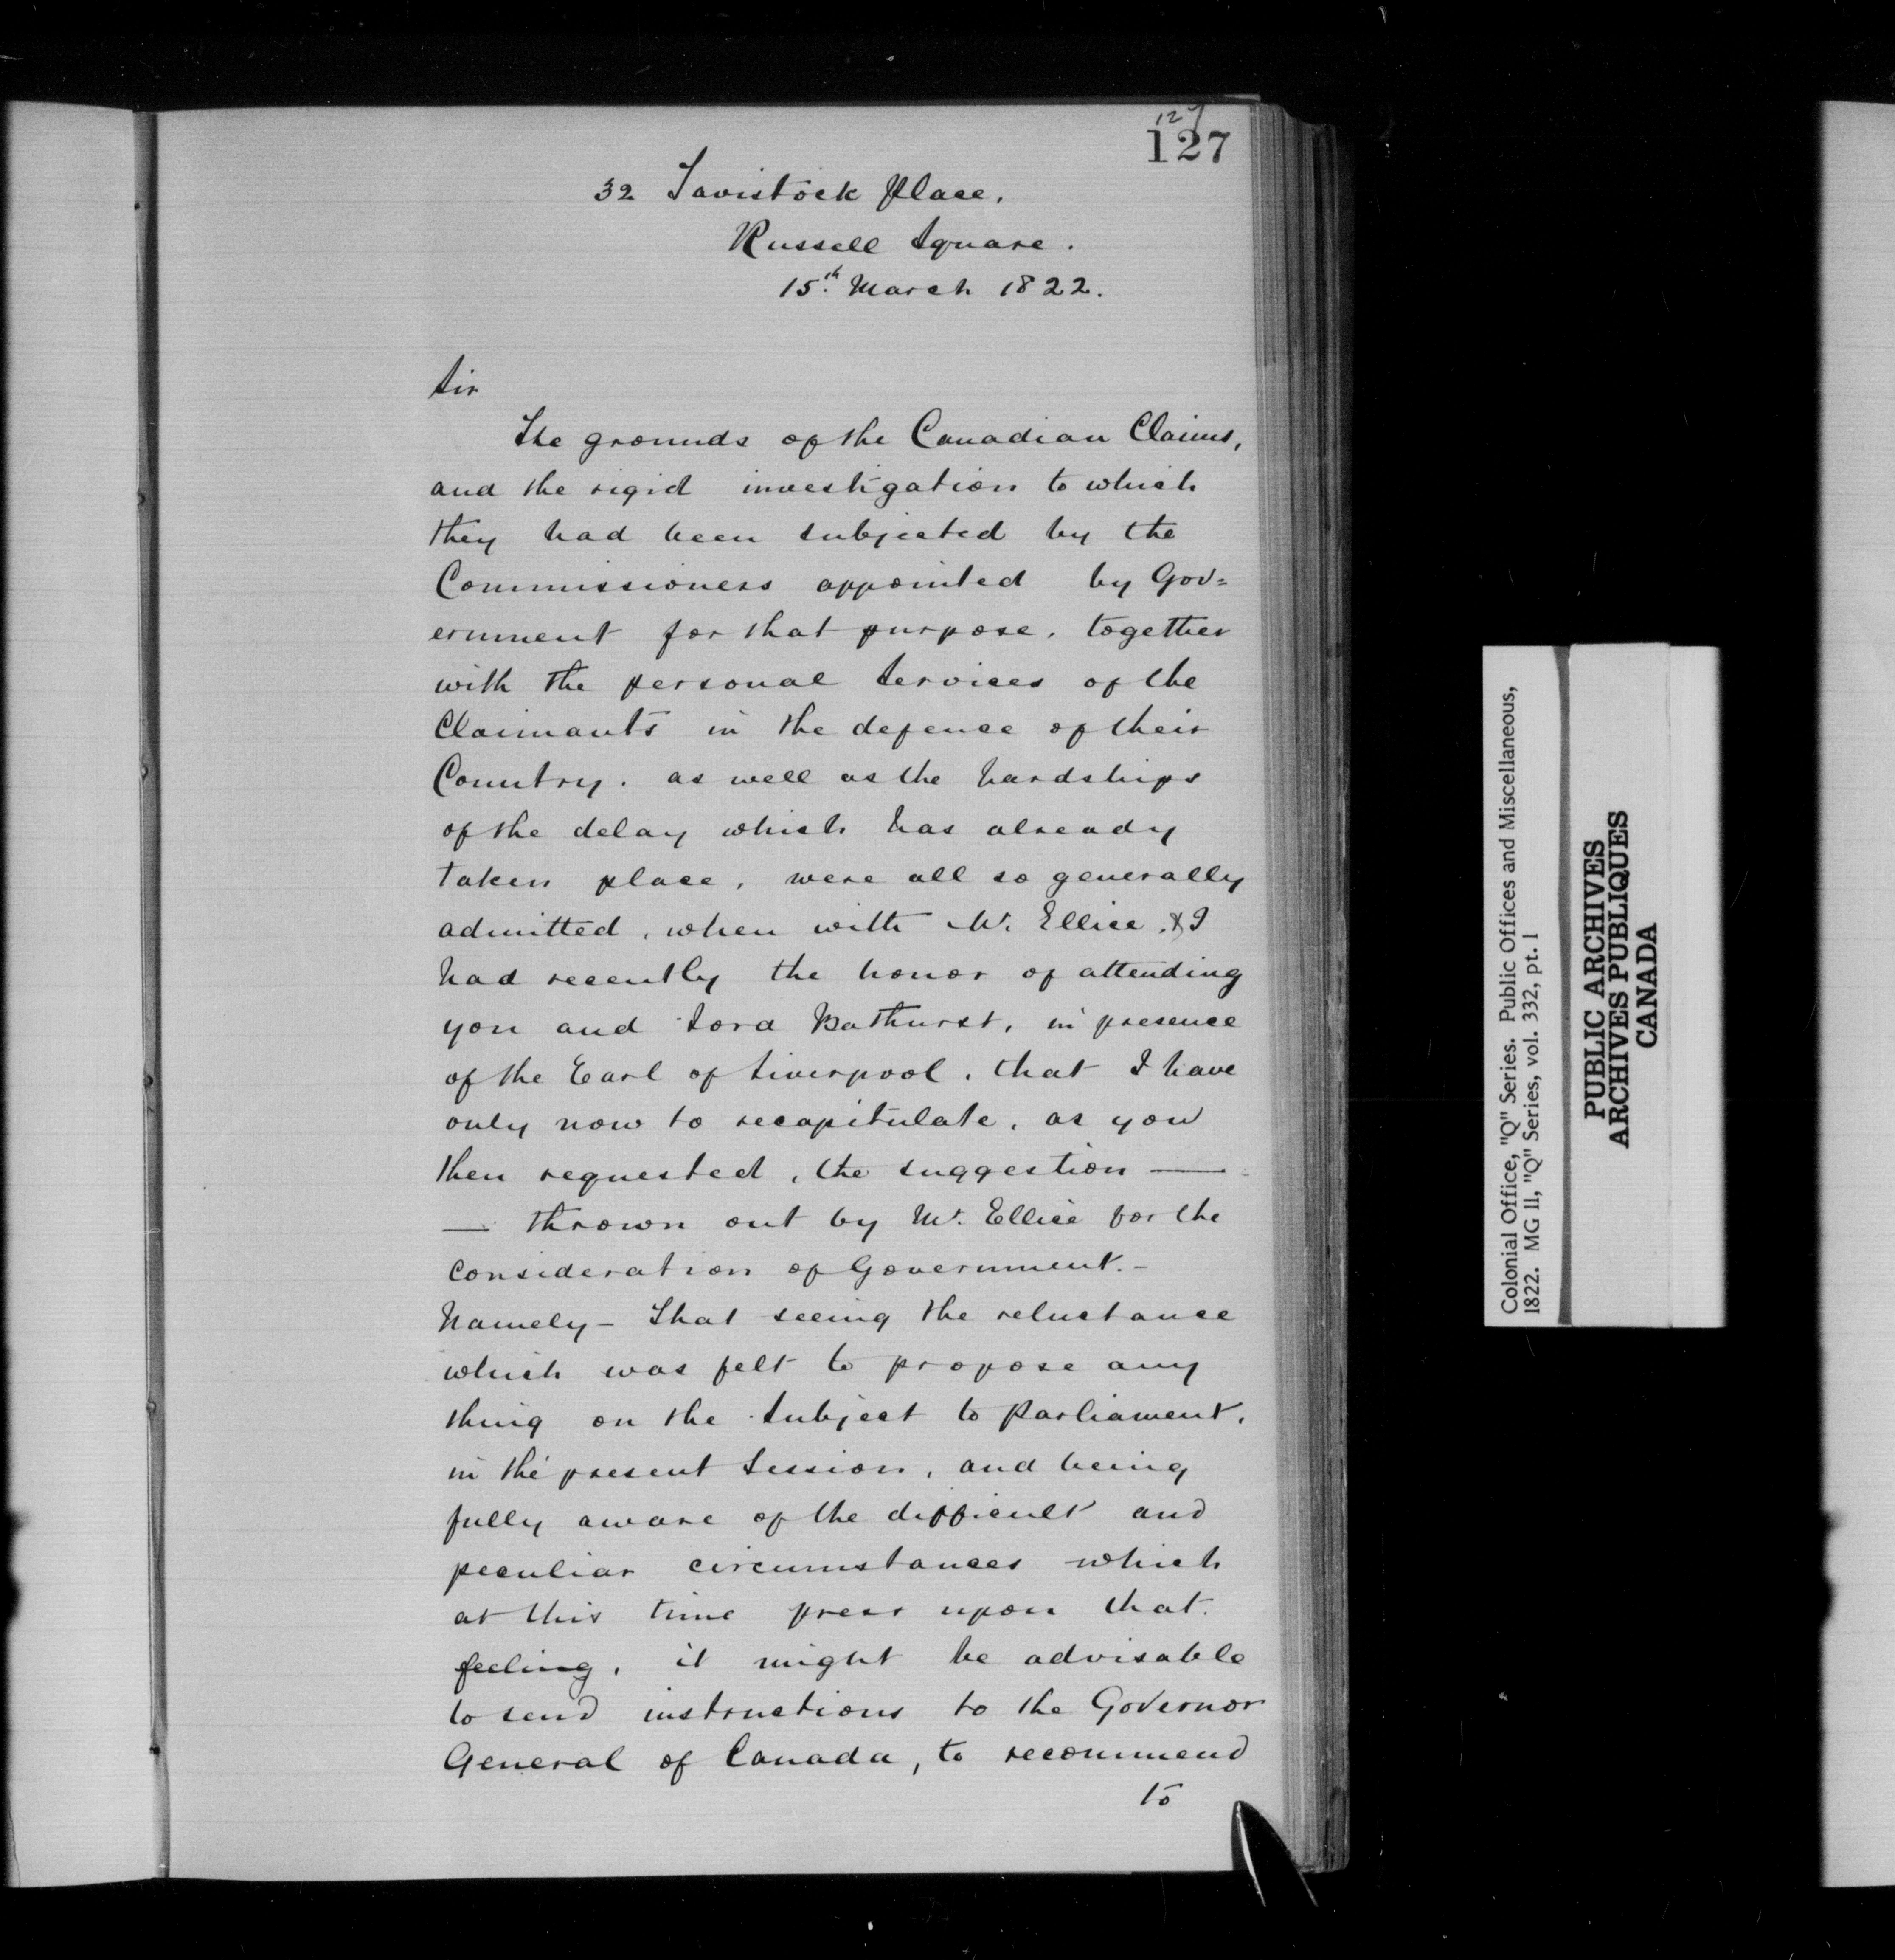 127
127
32 Tavistock Place.
Russell Square.
15th. March 1822.
Sir
The grounds of the Canadian Claims,
and the rigid investigation to which
they had been subjected by the
Commissioners appointed by Gov=
ernment for that purpose, together
with the personal Services of the
Claimants in the defence of their
Country. as well as the hardships
of the delay which has already
taken place, were all so generally
admitted, when with Mr. Ellice, & I
had recently the honor of attending
you and Lord Bathurst, in presence
of the Earl of Liverpool, that I have
only now to recapitulate, as you
then requested, the suggestion —
— thrown out by Mr. Ellice for the
consideration of Government. -
Namely - That seeing the reluctance
which was felt to propose any
thing on the Subject to Parliament,
in the present Session, and being
fully aware of the difficult and
peculiar circumstances which
at this time press upon that
feeling, it might be advisable
to send instructions to the Governor
General of Canada, to recommend
to
Colonial Office, "Q" Series. Public Offices and Miscellaneous,
1822. MG 11, "Q" Series, vol. 332, pt. 1
PUBLIC ARCHIVES
ARCHIVES PUBLIQUES
CANADA